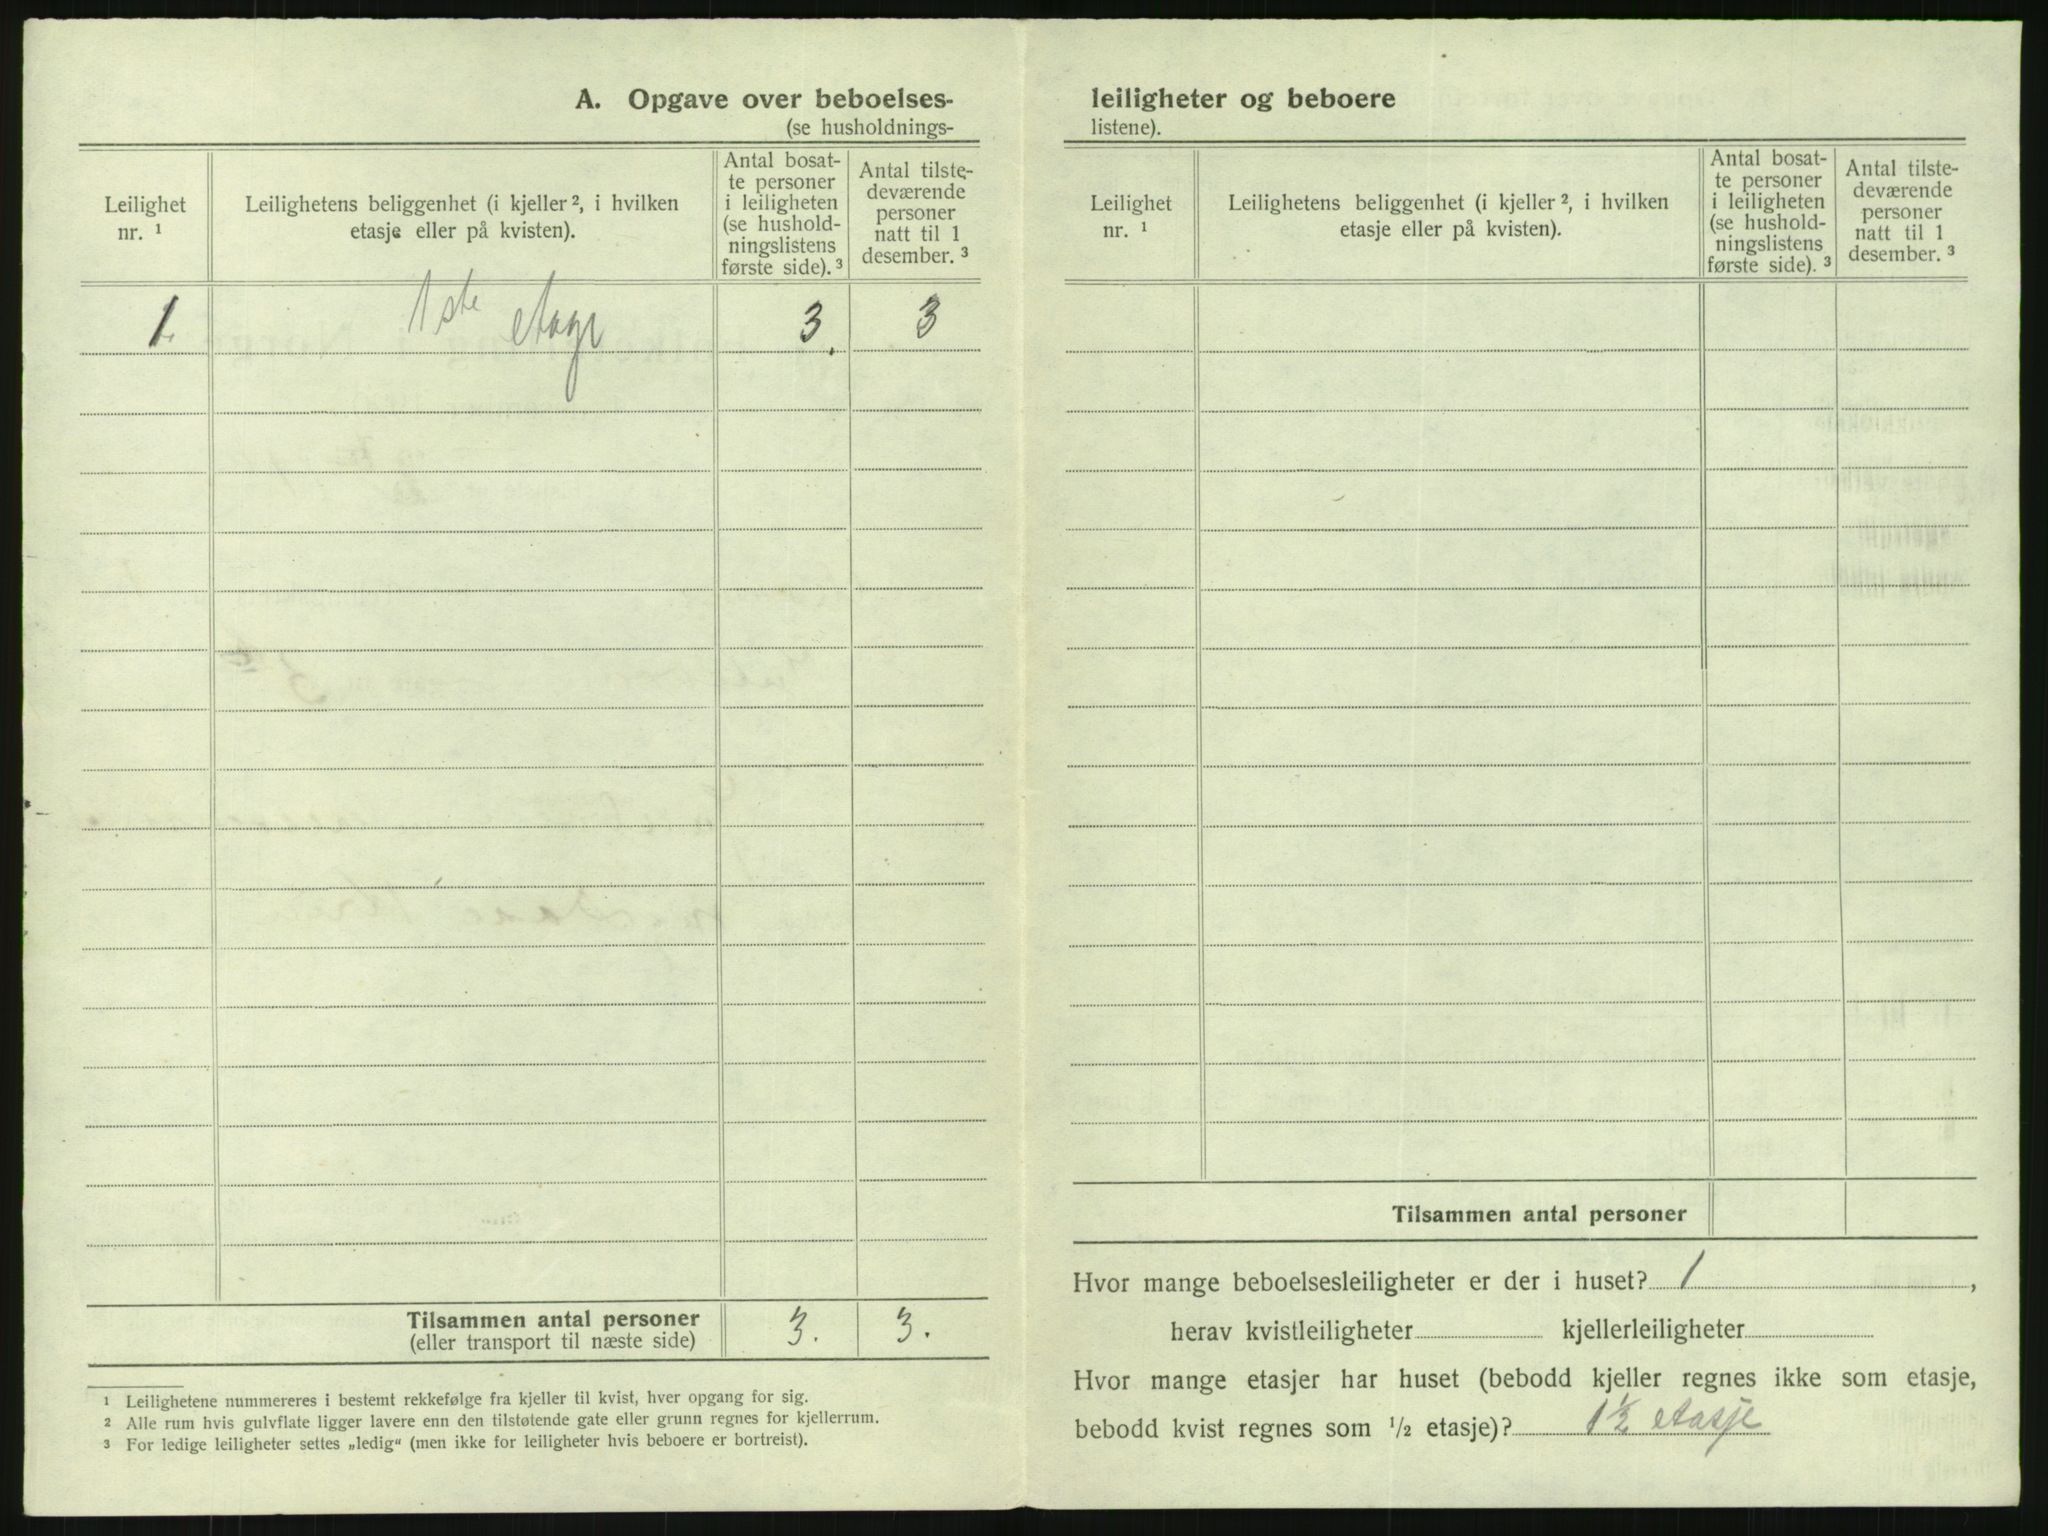 A. Opgave over beboelses-
(se husholdnings-
Leilighet nr. ¹
Leilighetens beliggenhet (i kjeller ², i hvilken etasje eller på kvisten).
Antal bosat-
te personer
i leiligheten
(se hushold-
ningslistens
første side). ³
Antal tilste-
deværende
personer
natt til 1
desember. ³
1. 1ste etage 3. 3
Tilsammen antal personer 3. 3.
(eller transport til næste side)
¹ Leilighetene nummereres i bestemt rekkefølge fra kjeller til kvist, hver opgang for sig.
² Alle rum hvis gulvflate ligger lavere enn den tilstøtende gate eller grunn regnes for kjellerrum.
³ For ledige leiligheter settes „ledig“ (men ikke for leiligheter hvis beboere er bortreist).
leiligheter og beboere
listene).
Leilighet nr. ¹
Leilighetens beliggenhet (i kjeller ², i hvilken etasje eller på kvisten).
Antal bosat-
te personer
i leiligheten
(se hushold-
ningslistens
første side). ³
Antal tilste-
deværende
personer
natt til 1
desember. ³
Tilsammen antal personer
Hvor mange beboelsesleiligheter er der i huset? 1,
herav kvistleiligheter kjellerleiligheter
Hvor mange etasjer har huset (bebodd kjeller regnes ikke som etasje,
bebodd kvist regnes som ¹/₂ etasje)? 1 ½ etasje